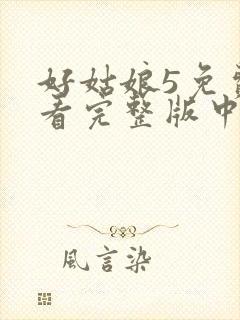 好姑娘5免费
看完整版中
風言染